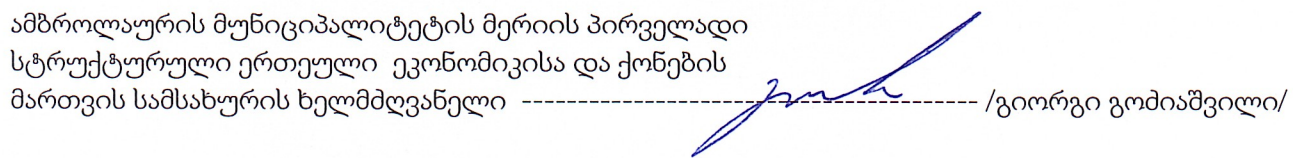 ამბროლაურის მუნიციპალიტეტის მერიის პირველადი
სტრუქტურული ერთეული ეკონომიკისა და ქონების
მართვის სამსახურის ხელმძღვანელი ---------------------------------------------------- /გიორგი გოძიაშვილი/